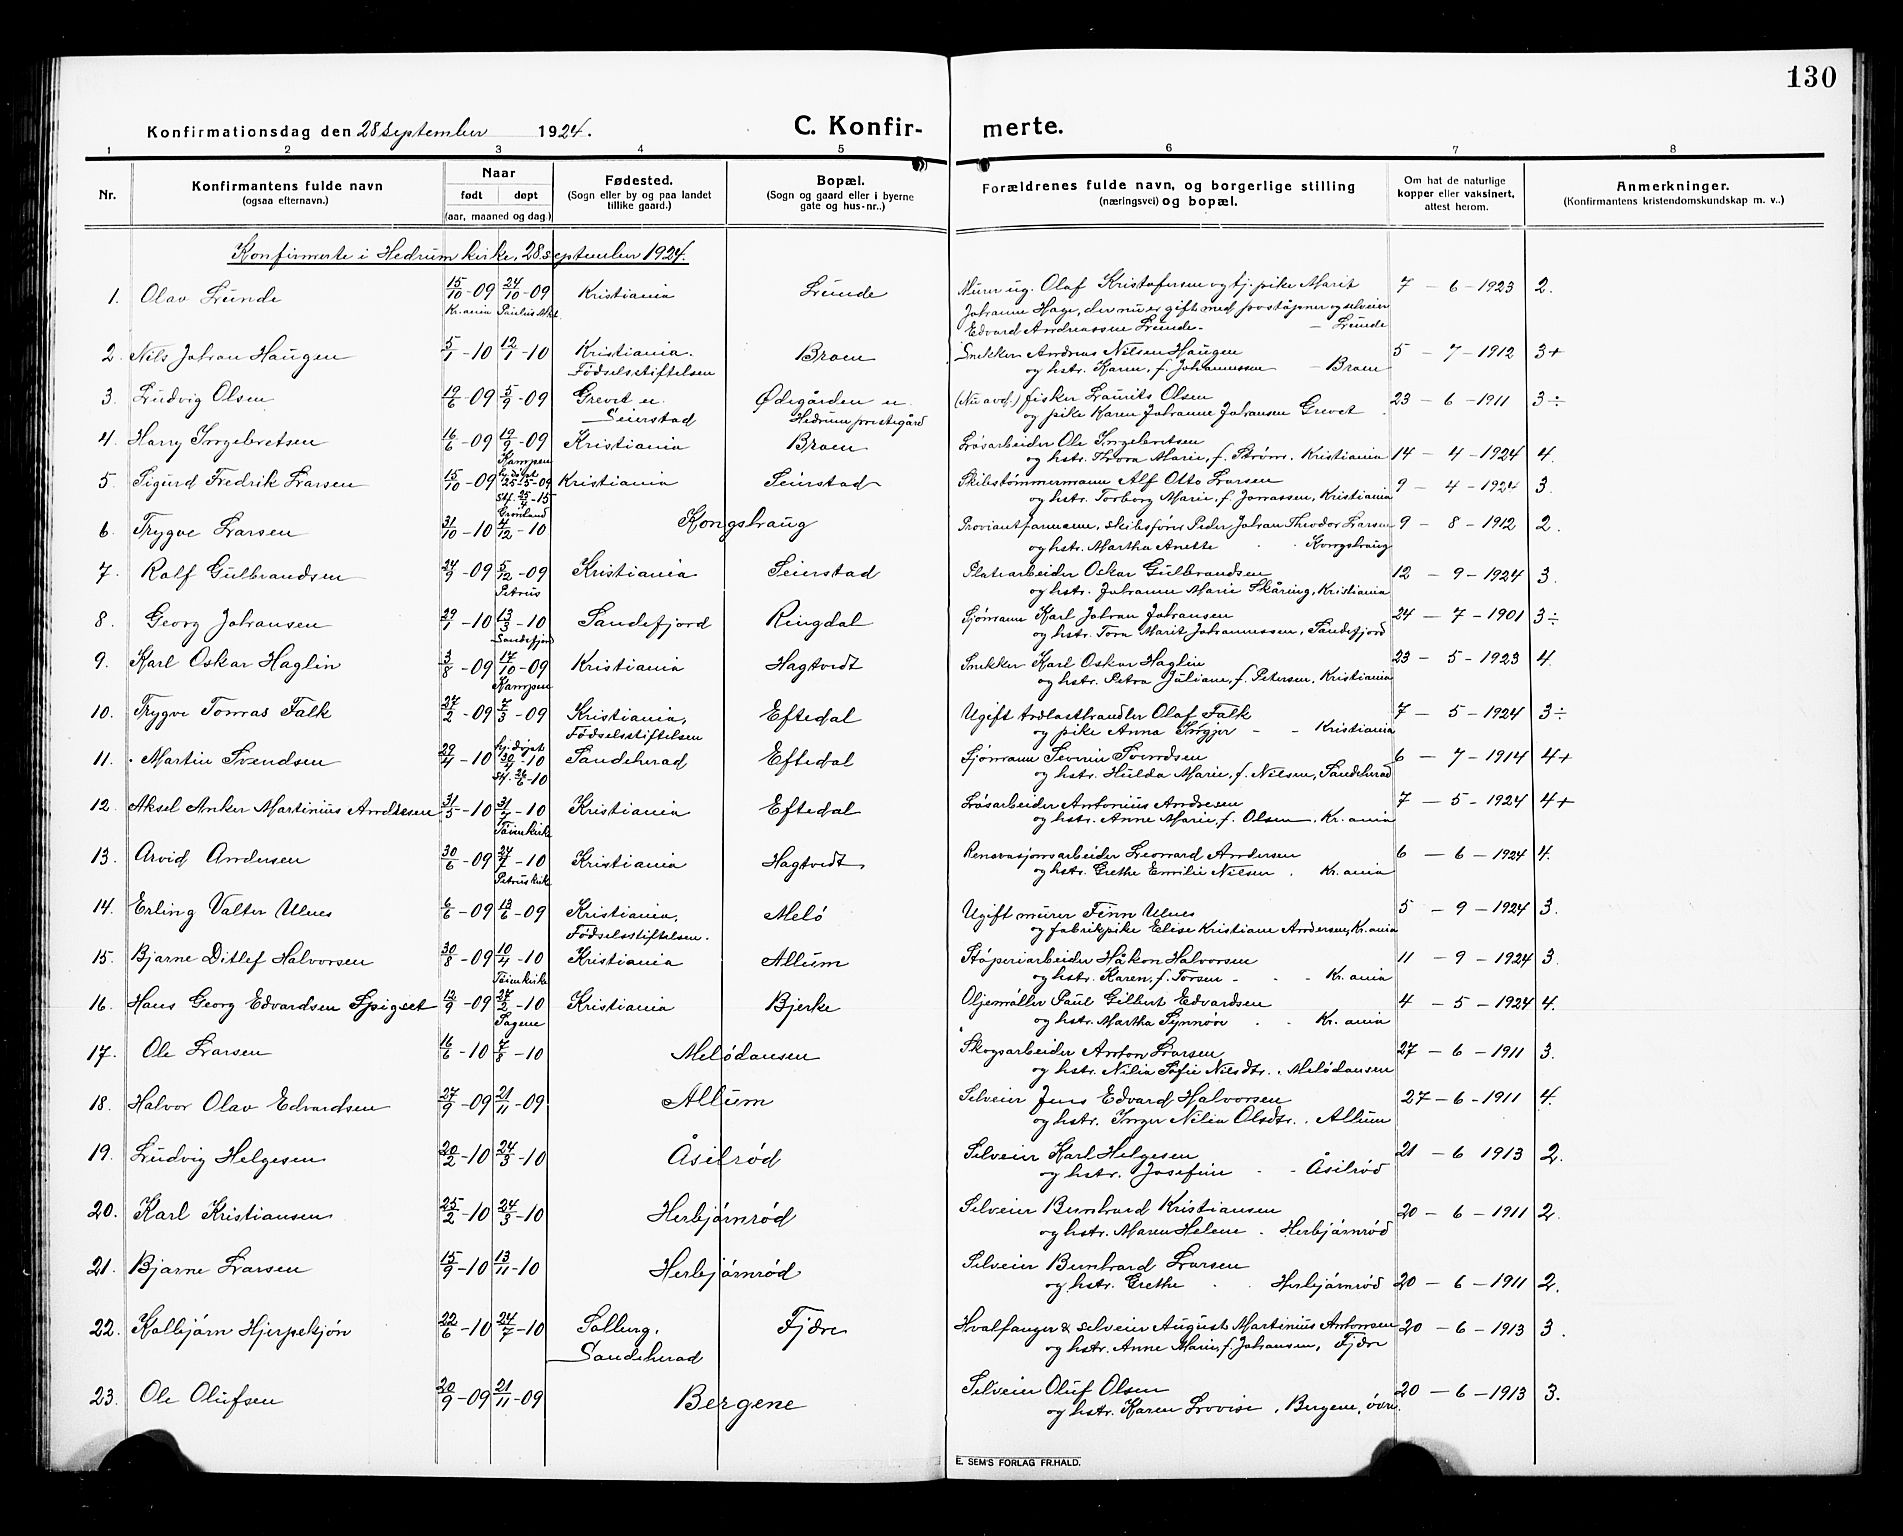 130
Konfirmationsdag den 28 september 1924.
C. Konfirmerte.
1 2 3 4 5 6 7 8
Nr.
Konfirmantens fulde navn
(ogsaa efternavn.)
Naar
født døpt
(aar, maaned og dag.)
Fødested.
(Sogn eller by og paa landet
tillike gaard.)
Bopæl.
(Sogn og gaard eller i byerne
gate og hus-nr..)
Forældrenes fulde navn, og borgerlige stilling
(næringsvei) og bopæl.
Om hat de naturlige
kopper eller vaksinert,
attest herom.
Anmerkninger.
(Konfirmantens kristendomskundskap m. v..)
Konfirmerte i Hedrum kirke, 28. september 1924.
1. Olav Lunde 15/10-09 24/10-09 Kristiania Lunde Murer ug. Olaf Kristofersen og tj. pike Marit 7 - 6 - 1923 2.
Kr.ania Paulus Johanne Hage, der nu er gift med poståpner og selveier
Edvard Andreassen Lunde. - Lunde
2. Nils Johan Haugen 5/1-10 12/1-10 Kristiania. Braen Snekker Andreas Nilsen Haugen 5 - 7 - 1912 3+
Fødselsstiftelsen og hstr. Karen, f. Johannessen - Braen
3. Ludvig Olsen 19/6-09 5/9-09 Grevet u. Ødegården u. (Nu avd.) fisker Laurits Olsen 23 - 6 - 1911 3÷
Seierstad Hedrum prestegård og pike Karen Johanne Johansen Grevet
4. Harry Ingebretsen 16/6-09 19/9-09 Kristiania Braen Løsarbeider Ole Ingebretsen
Kampen og hstr. Thora Marie, f. Strøm. Kristiania 14 - 4 - 1924 4.
5. Sigurd Fredrik Larsen 15/10-09 hj.døpt 25-5-09 Kristiania Seierstad Skibstømmermann Alf Otto Larsen 9 - 4 - 1924 3.
Grønland og hstr. Torborg Marie, f. Jonassen, Kristiania
6. Trygve Larsen 31/10-10 4/12-10 Kongshaug Proviantformann, skibsfører Peder Johan Theodor Larsen 9 - 8 - 1912 2.
og hstr. Martha Anette - Kongshaug
7. Rolf Gulbrandsen 24/9-09 5/12-09 Kristiania Seierstad Platearbeider Oskar Gulbrandsen 12 - 9 - 1924 3.
Petrus og hstr. Johanne Marie Skåring, Kristiania
8. Georg Johansen 29/1-10 13/3-10 Sandefjord Ringdal Sjømann Karl Johan Johansen 24 - 7 - 1901 3÷
Sandefjord og hstr. Tora Marit Johannessen, Sandefjord
9. Karl Oskar Haglin 3/8-09 17/10-09 Kristiania Hagtvedt Snekker Karl Oskar Haglin 23 - 5 - 1923 4.
Kampen og hstr. Petra Juliane, f. Petersen, Kristiania
10. Trygve Tomas Falk 27/2-09 7/3-09 Kristiania, Eftedal Ugift Olaf Falk 7 - 5 - 1924 3÷
Fødselsstiftelsen og pike Anna - Kristiania
11. Martin Svendsen 29/4-10 hj.døpt 30/4-10 Sandeherad Eftedal Sjømann Severin Svendsen 6 - 7 - 1914 4+
st. 26/6-10 og hstr. Hulda Marie, f. Nilsen, Sandeherad
12. Aksel Anker Martinius Andresen 31/5-10 31/7-10 Kristiania Eftedal Løsarbeider Antonius Andresen 7 - 5 - 1924 4+
Tøienkirke og hstr. Anne Marie, f. Olsen, Kr.ania
13. Arvid Andersen 30/6-09 24/7-10 Kristiania Hagtvedt Renovasjonsarbeider Leonard Andersen 6 - 6 - 1924 4.
Petruskirke og hstr. Grethe Emilie Nilsen. Kr.ania
14. Erling Valter Ulnes 6/6-09 13/6-09 Kristiania, Melø Ugift murer Finn Ulnes 5 - 9 - 1924 3.
Fødselsstiftelsen. og fabrikpike Elise Kristiane Andersen, Kr.ania
15. Bjarne Ditlef Halvorsen 30/8-09 10/4-10 Kristiania Allum Støperiarbeider Håkon Halvorsen 11 - 9 - 1924 3.
Tøienkirke og hstr. Karen, f. Torsen - Kr.ania
16. Hans Georg Edvardsen Spigset 12/9-09 27/2-10 Kristiania Bjerke Oljemøller Paul Gilbert Edvardsen 4 - 5 - 1924 4.
Sagene og hstr. Martha Synnøve . . Kr.ania
17. Ole Larsen 16/6-10 7/8-10 Melødansen Skogsarbeider Anton Larsen 27 - 6 - 1911 3.
og hstr. Nilia Sofie Nilsdtr. , Melødansen
18. Halvor Olav Edvardsen 27/9-09 21/11-09 Allum Selveier Jens Edvard Halvorsen 27 - 6 - 1911 4.
og hstr. Inger Nilia Olsdtr. . Allum
19. Ludvig Helgesen 20/2-10 24/3-10 Åsilrød Selveier Karl Helgesen 21 - 6 1913 2.
og hstr. Josefine - - Åsilrød
20. Karl Kristiansen 25/2-10 24/3-10 Herbjørnrød Selveier Bernhard Kristiansen 20 - 6 - 1911 2.
og hstr. Maren Helene . Herbjørnrød
21. Bjarne Larsen 15/9-10 13/11-10 Herbjørnrød Selveier Bernhard Larsen
og hstr. Grethe . . Herbjørnrød 20 - 6 - 1911 2.
22. Kolbjørn Hjerpekjøn 22/6-10 24/7-10 Solberg, Fjære Hvalfanger & selveier August Martinius Antonsen 20 - 6 - 1913 3.
Sandeherad og hstr. Anne Marie, f. Johansen, Fjære
23. Ole Olufsen 20/9-09 21/11-09 Bergene Selveier Oluf Olsen 20 - 6 - 1913 3.
og hstr. Karen Lovise , Bergene, øvre.
E. SEM'S FORLAG FR.HALD.